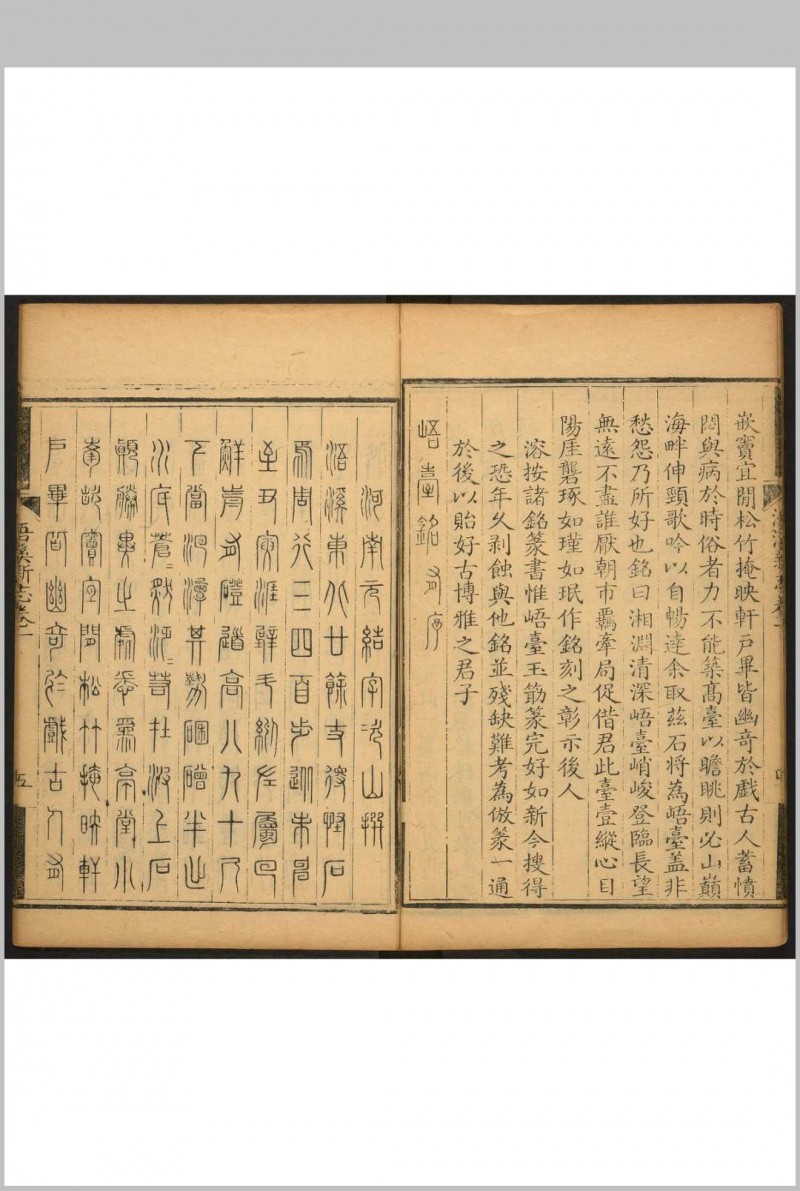 嵌竇宜閒松竹掩映軒戶畢皆幽奇於戲古人蓄憤
悶與病於時俗者力不能築髙臺以瞻眺則必山巔
海畔伸頸歌吟以自暢達余取茲石将為峿臺盖非
愁怨乃所好也銘曰湘淵清深峿臺峭峻登臨長望
無遠不盡誰厭朝市羈牽局促借君此臺壹縱心目
陽厓礱琢如瑾如珉作銘刻之彰示後人
溶按諸銘篆書惟峿臺玉筯篆完好如新今搜得
之恐年久剥蝕與他銘並殘缺難考為倣篆一通
於後以貽好古博雅之君子
峿臺銘有序
河南元結字次山撰
浯溪東北廿餘丈得怪石
焉周行三四百步從未申
至丑寅涯壁斗絕左屬回
鮮前有磴道高八九十尺
下當洄潭其勢碅磳半出
水底蒼然泛泛若在波上石
巔勝異之處悉為亭堂小
峯嵌竇宜閒松竹掩映軒
戶畢皆幽奇於戲古人有
浯溪新志卷一
五